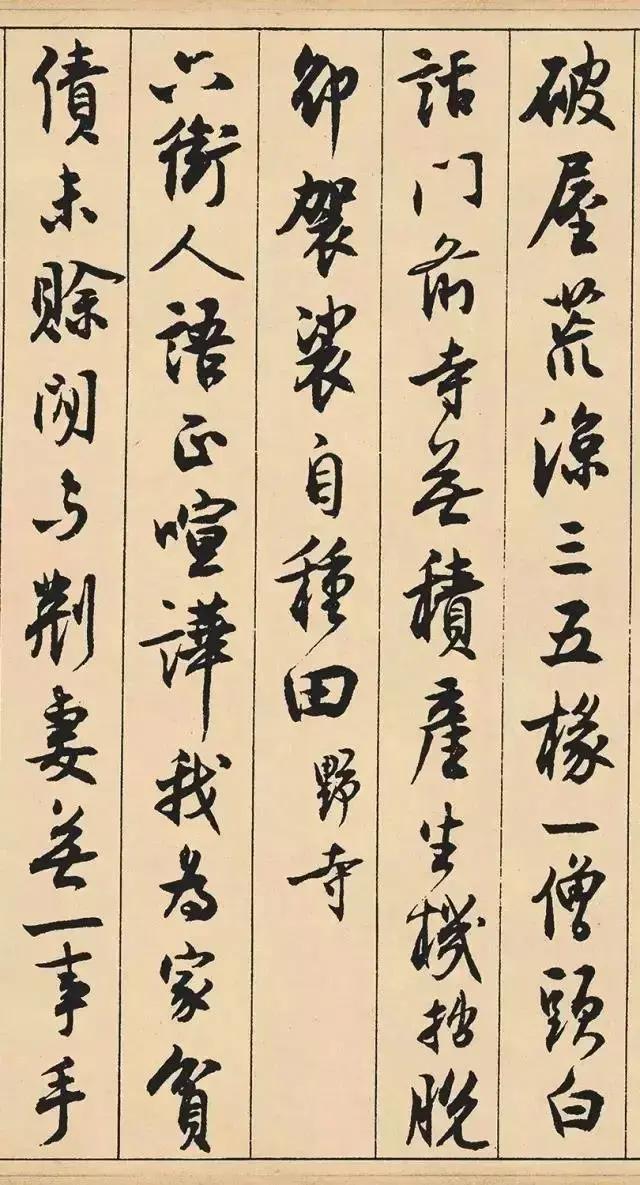 破屋荒涼三五椽一僧頭白
話門前寺無積產生機拙脫
卻袈裟自種田野寺
六街人語正喧譁我為家貧
債未賒閒與荊妻無一事手